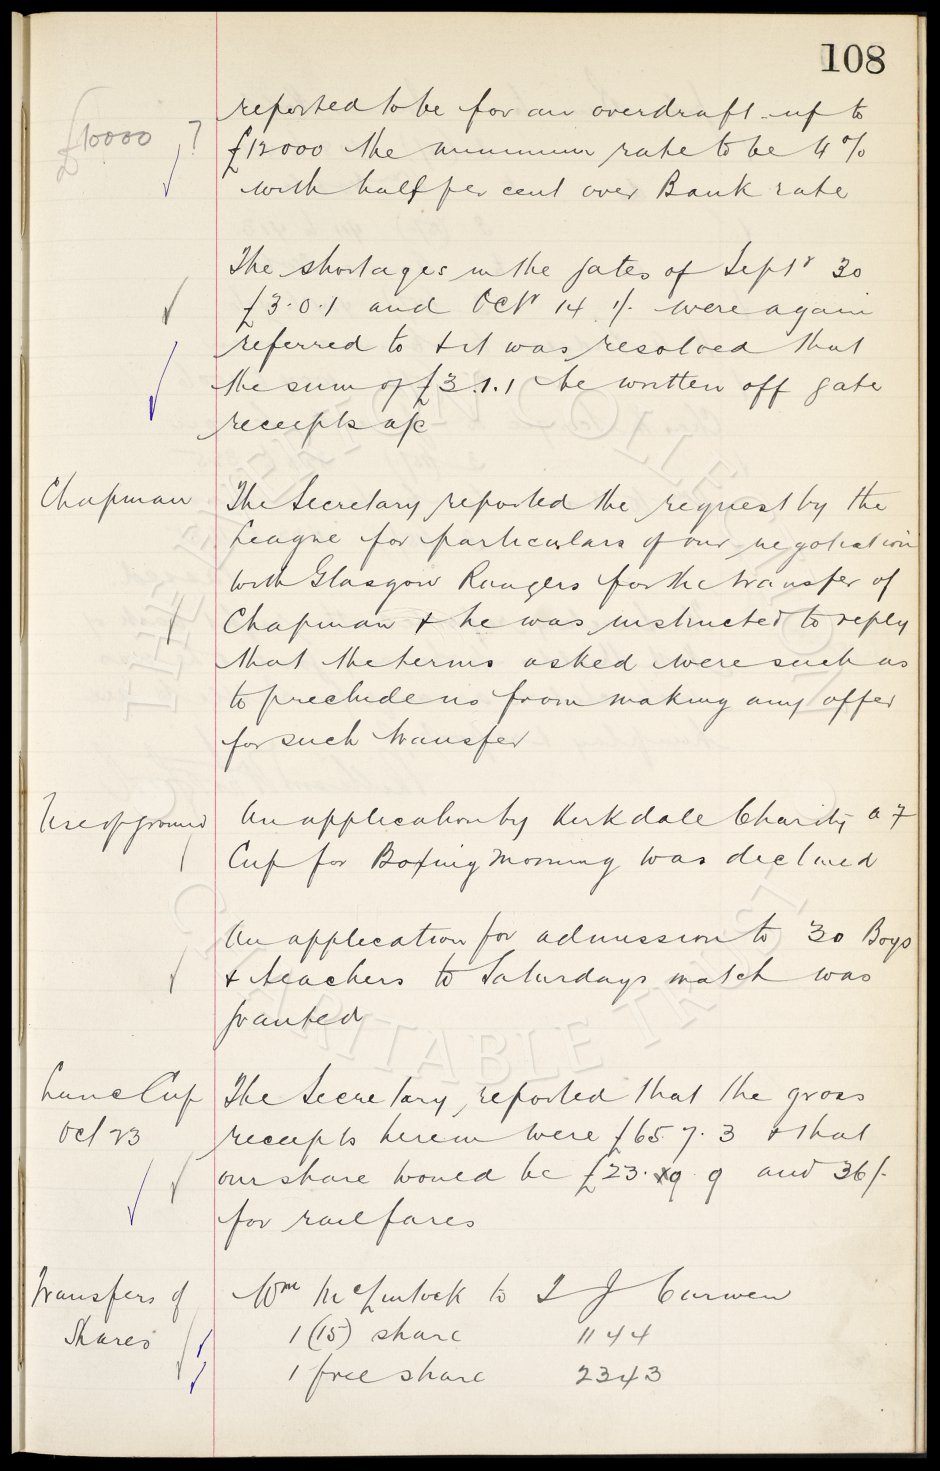 108
reported to be for an overdraft up to
£10000 ?
£12000 the minimum rate to be 4%
with half per cent over Bank rate
The shortages in the gates of Septr 30
£3.0.1 and Octr 14 1/- were again
referred to & it was resolved that
the sum of £3.1.1 be written off gate
receipts a/c
Chapman The Secretary reported the request by the
League for particulars of our negotiation
with Glasgow Rangers for the transfer of
Chapman & he was instructed to reply
that the terms asked were such as
to preclude us from making any offer
for such transfer
Use of ground An application by Kirkdale Charity a 7
Cup for Boxing Morning was declined
An application for admission to 30 Boys
& teachers to Saturdays match was
granted
Lanc Cup The Secretary reported that the gross
Oct 23 receipts herein were £65.7.3 & that
our share would be £23.9.9 and 36/-
for rail fares
Transfers of Wm McClintock to T J Curwen
Shares 1 (15) share 1144
1 free share 2343
EVERTON COLLECTION
CHARITABLE TRUST